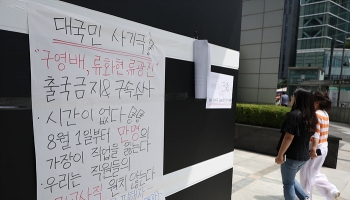 대국민 사기극
"구영배, 류화현, 류광진"
출국금지& 구속수사
· 시간이 없다
8월 1일부터 만명의
가장이 직업을 잃는다
· 우리는 직원들의
원치 않는다